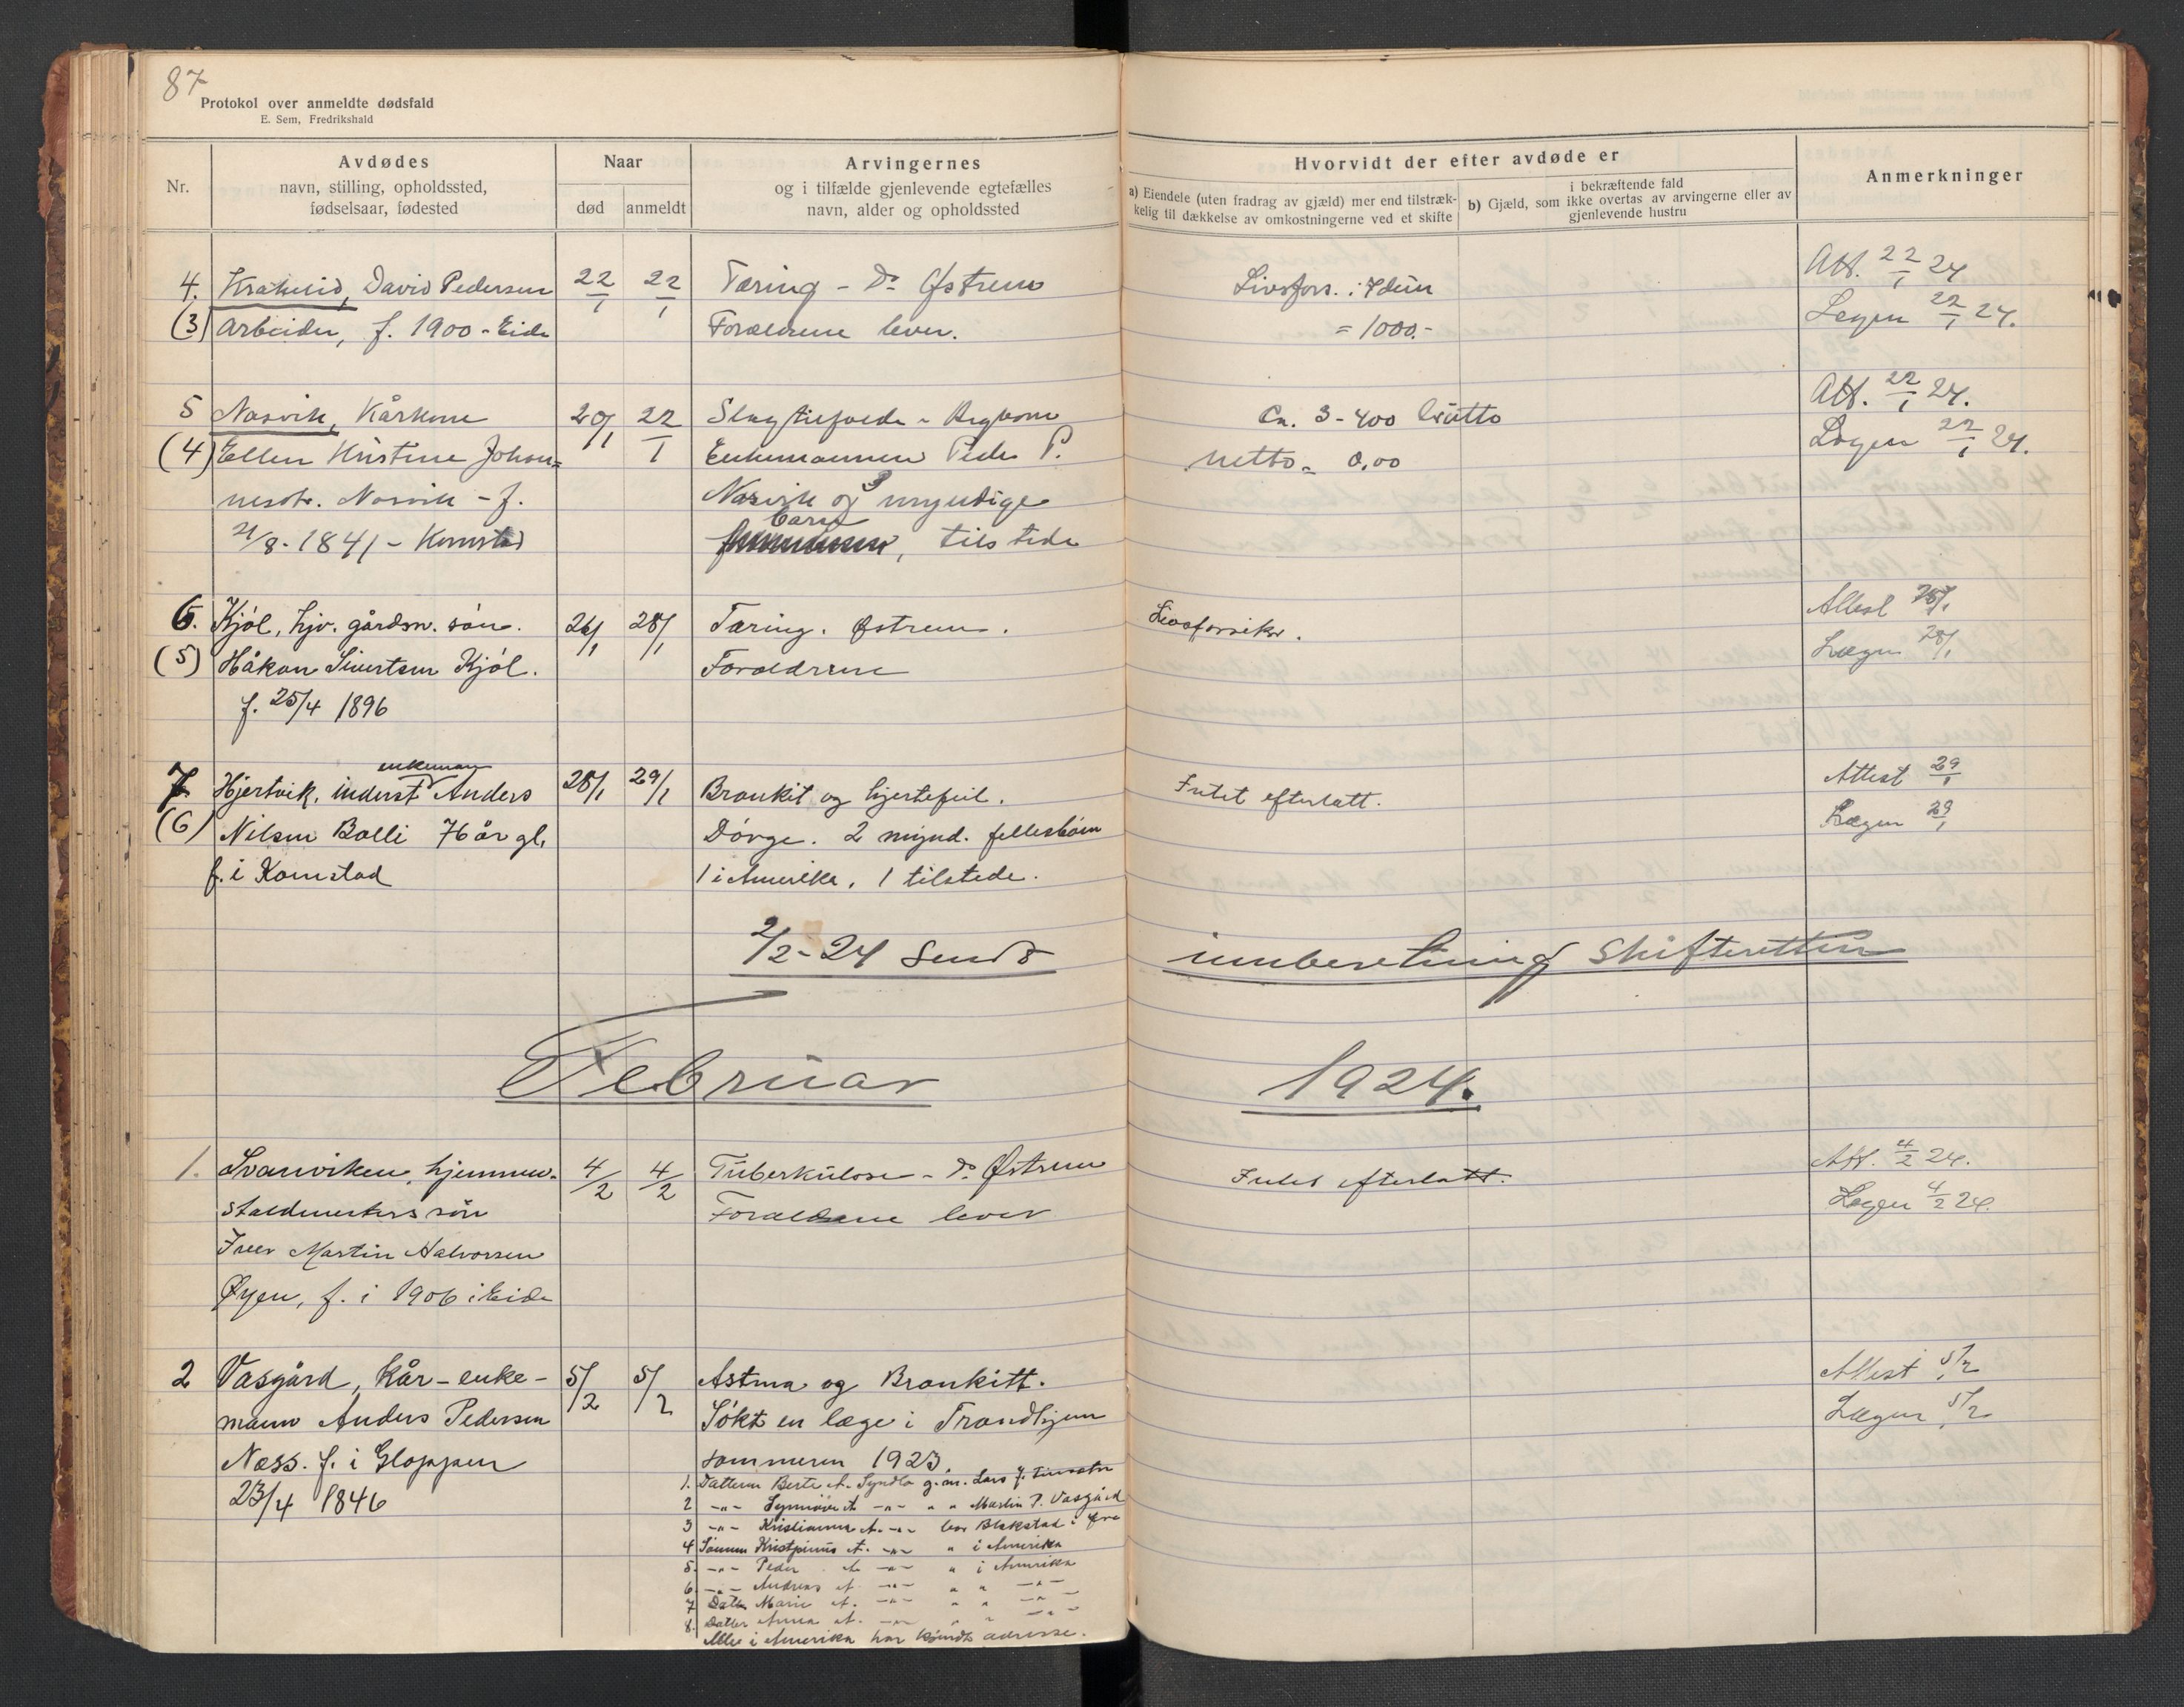 87
Protokol over anmeldte dødsfald
E. Sem, Fredrikshald
Nr.
Avdødes
navn, stilling, opholdssted,
fødselsaar, fødested
Naar
død
anmeldt
Arvingernes
og i tilfælde gjenlevende egtefælles
navn, alder og opholdssted
Hvorvidt der efter avdøde er
a) Eiendele (uten fradrag av gjæld) mer end tilstræk-
kelig til dækkelse av omkostningerne ved et skifte
i bekræftende fald
b) Gjæld, som ikke overtas av arvingerne eller av
gjenlevende hustru
Anmerkninger
4. David Pedersen 22/1 22/1 Tæring - Dr Østrem Livsfors. i Idun Att. 22/1 24
(3) Arbeider, f. 1900 - Eide Forældrene lever. = 1000.- Legen 22/1 24.
5 Nasvik, Kårkone 20/1 22/1 Slagtilfælde - Ca. 3-400 brutto Att. 22/1 24.
(4) Ellen Kristine Johan= Enkemannen Peder P. netto = 0,00 Legen 22/1 24.
nesdtr. Nasvik - f. Nasvik og 3 myndige
barn
21/8 - 1841 - Komstad tilstede
6. Kjøl, hjv. gårdm. søn. 26/1 28/1 Tæring. Østrem. Livsforsikr. Attest 28/1
(5) Håkon Sivertsen Kjøl. Foreldrene Lægen 28/1
f. 25/4 1896
enkeman
7. Hjertvik, inderst Anders 28/1 29/1 Bronkit og hjertefeil. Intet efterlatt. Attest 29/1
(6) Nilsen Bolli 76 år gl. Dørge. 2 mynd. fellesbørn Lægen 29/1
f. i Komstad 1 i Amerika, 1 tilstede.
2/2 - 24 Sendt innberetning Skifteretten
Februar 1924.
1. Svanviken, hjemmev. 4/2 4/2 Tuberkulose - Dr Østrem Intet efterlatt. Att. 4/2 24.
staldmesters søn Foreldrene lever Legen 4/2 24.
Iver Martin Halvorsen
Øyen, f. i 1906 i Eide
2 Vasgård, Kår-enke- 5/2 5/2 Astma og Bronkitt. Attest 5/2
mann Anders Pedersen Søkt en læge i Trondhjem Lægen 5/2
Næss. f. i Gloppen sommeren 1923.
23/4 1846 1. Datteren Berte A. g.m. Lars J.
2 -"- A. -"- " " Martin P. Vasgård
3 -"- Kristianna A. -"- bor Blakstad i Øre
4 Sønnen A. -"- " i Amerika
5. -"- Peder A. -"- " i Amerika
6. -"- Andreas A. -"- " " -"-
7 Datter Marie A. -"- " " -"-
8. Datter Anna A. -"- " " -"-
Alle i Amerika har kjendt adresse.